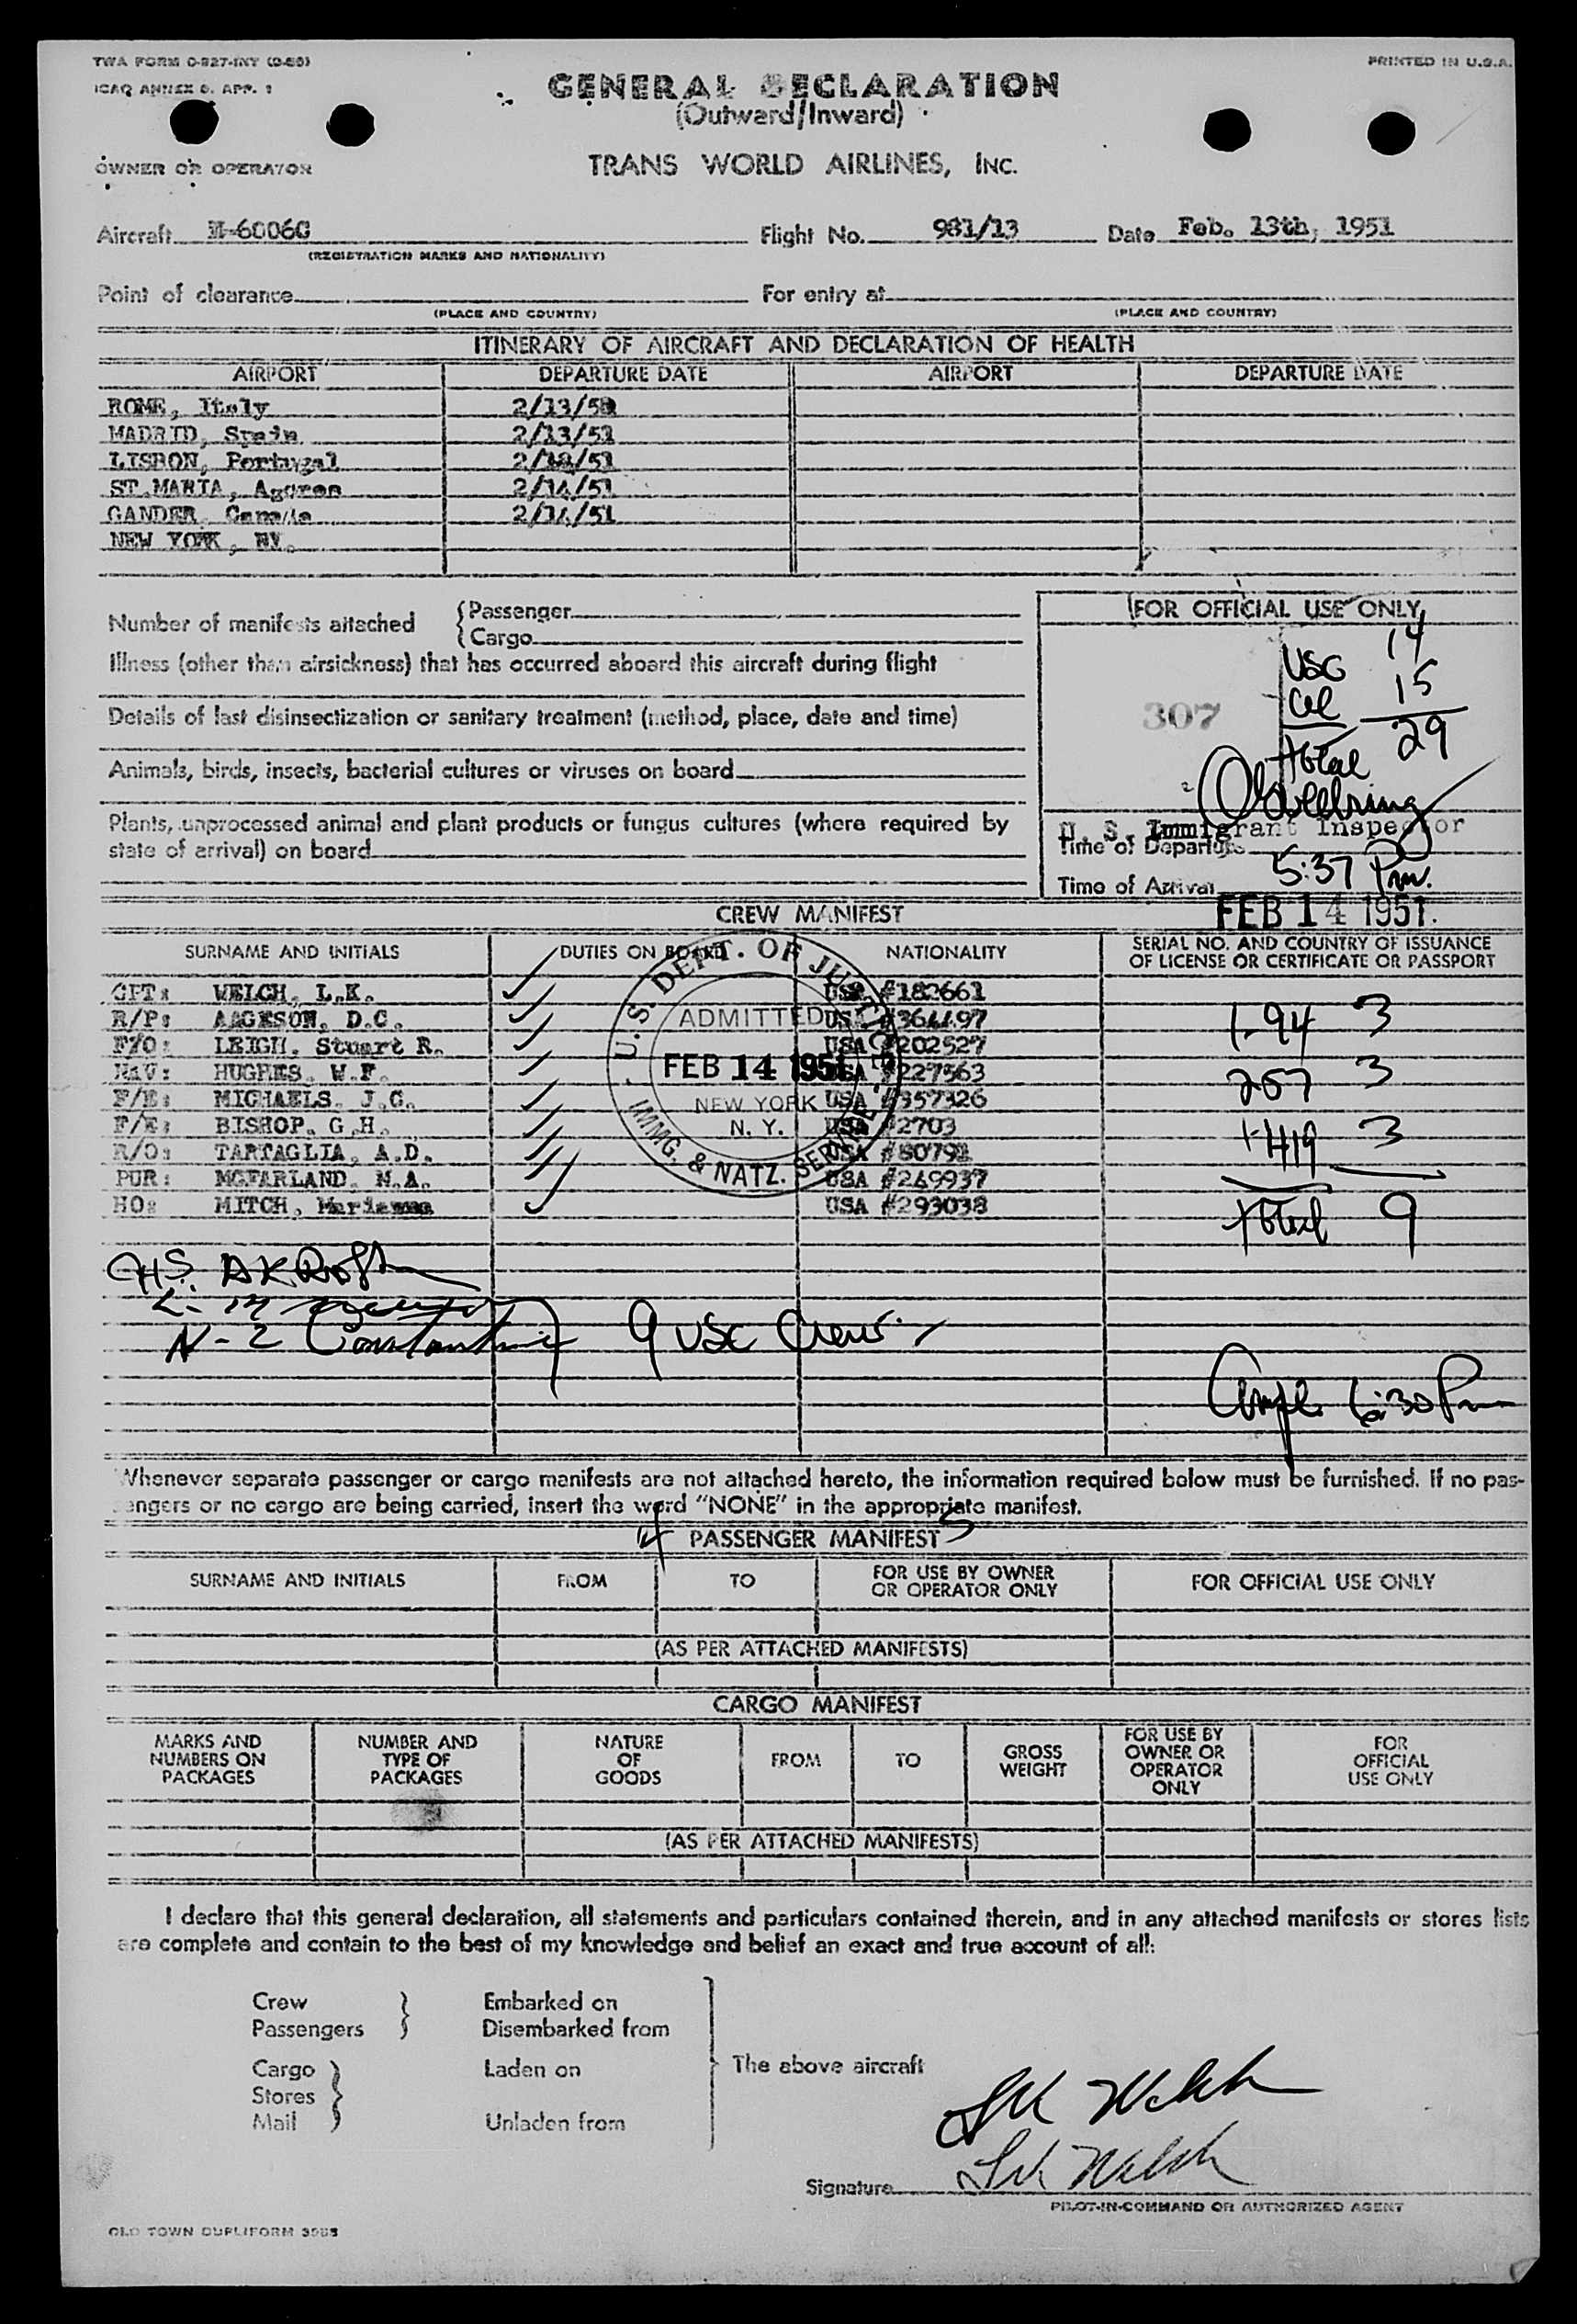 TWA FORM O-927-INT
PRINTED IN U.S.A.
ICAO ANNEX 9. APP. 1
GENERAL DECLARATION
(Outward/Inward)
OWNER OR OPERATOR
TRANS WORLD AIRLINES, INC.
Aircraft N-6006C Flight No. 981/13 Date Feb. 13th, 1951
(REGISTRATION MARKS AND NATIONALITY)
Point of clearance For entry at
(PLACE AND COUNTRY) (PLACE AND COUNTRY)
ITINERARY OF AIRCRAFT AND DECLARATION OF HEALTH
AIRPORT DEPARTURE DATE AIRPORT DEPARTURE DATE
ROME, Italy 2/13/51
MADRID, Spain 2/13/51
LISBON, Portugal
ST.MARIA, 2/14/51
GANDER, Canada 2/14/51
NEW YORK, NY.
Number of manifests attached {Passenger
{Cargo
FOR OFFICIAL USE ONLY
Illness (other than airsickness) that has occurred aboard this aircraft during flight
USC 14
15
307
total 29
Details of last disinsectization or sanitary treatment (method, place, date and time)
Animals, birds, insects, bacterial cultures or viruses on board
Plants, unprocessed animal and plant products or fungus cultures (where required by
state of arrival) on board
U. S. Immigrant Inspector
Time of Departure
Time of Arrival 5:37 Pm.
FEB 14 1951.
CREW MANIFEST
SURNAME AND INITIALS DUTIES ON BOARD NATIONALITY SERIAL NO. AND COUNTRY OF ISSUANCE
OF LICENSE OR CERTIFICATE OR PASSPORT
CPT: WELCH, L.K. USA #182661
R/P: AAGESON, D.C. USA #364497
F/O: LEIGH, Stuart R. USA #202527
NAV: HUGHES, W.F. USA #227563
F/E: MICHAELS, J.C. USA #357326
F/E: BISHOP, G.H. USA #2703
R/O: TARTAGLIA, A.D. USA #80791
PUR: MCFARLAND, N.A. USA #249937
HO: MITCH, USA #293038
U.S. DEPT. OF JUSTICE
ADMITTED
FEB 14 1951
NEW YORK
N. Y.
IMMG. & NATZ. SERVICE
1-94 3
257 3
1-419 3
total 9
9 USC Crew
Compl. 6:30 Pm
Whenever separate passenger or cargo manifests are not attached hereto, the information required below must be furnished. If no pas-
sengers or no cargo are being carried, insert the word "NONE" in the appropriate manifest.
4 PASSENGER MANIFEST 5
SURNAME AND INITIALS FROM TO FOR USE BY OWNER
OR OPERATOR ONLY FOR OFFICIAL USE ONLY
(AS PER ATTACHED MANIFESTS)
CARGO MANIFEST
MARKS AND
NUMBERS ON
PACKAGES NUMBER AND
TYPE OF
PACKAGES NATURE
OF
GOODS FROM TO GROSS
WEIGHT FOR USE BY
OWNER OR
OPERATOR
ONLY FOR
OFFICIAL
USE ONLY
(AS PER ATTACHED MANIFESTS)
I declare that this general declaration, all statements and particulars contained therein, and in any attached manifests or stores lists
are complete and contain to the best of my knowledge and belief an exact and true account of all:
Crew Embarked on
Passengers Disembarked from
Cargo Laden on The above aircraft
Stores
Mail Unladen from
LK Welch
Signature LK Welch
PILOT-IN-COMMAND OR AUTHORIZED AGENT
OLD TOWN DUPLIFORM